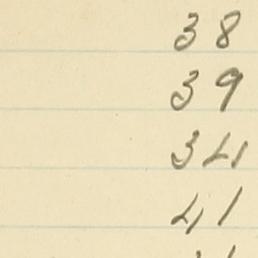 38
39
34
41